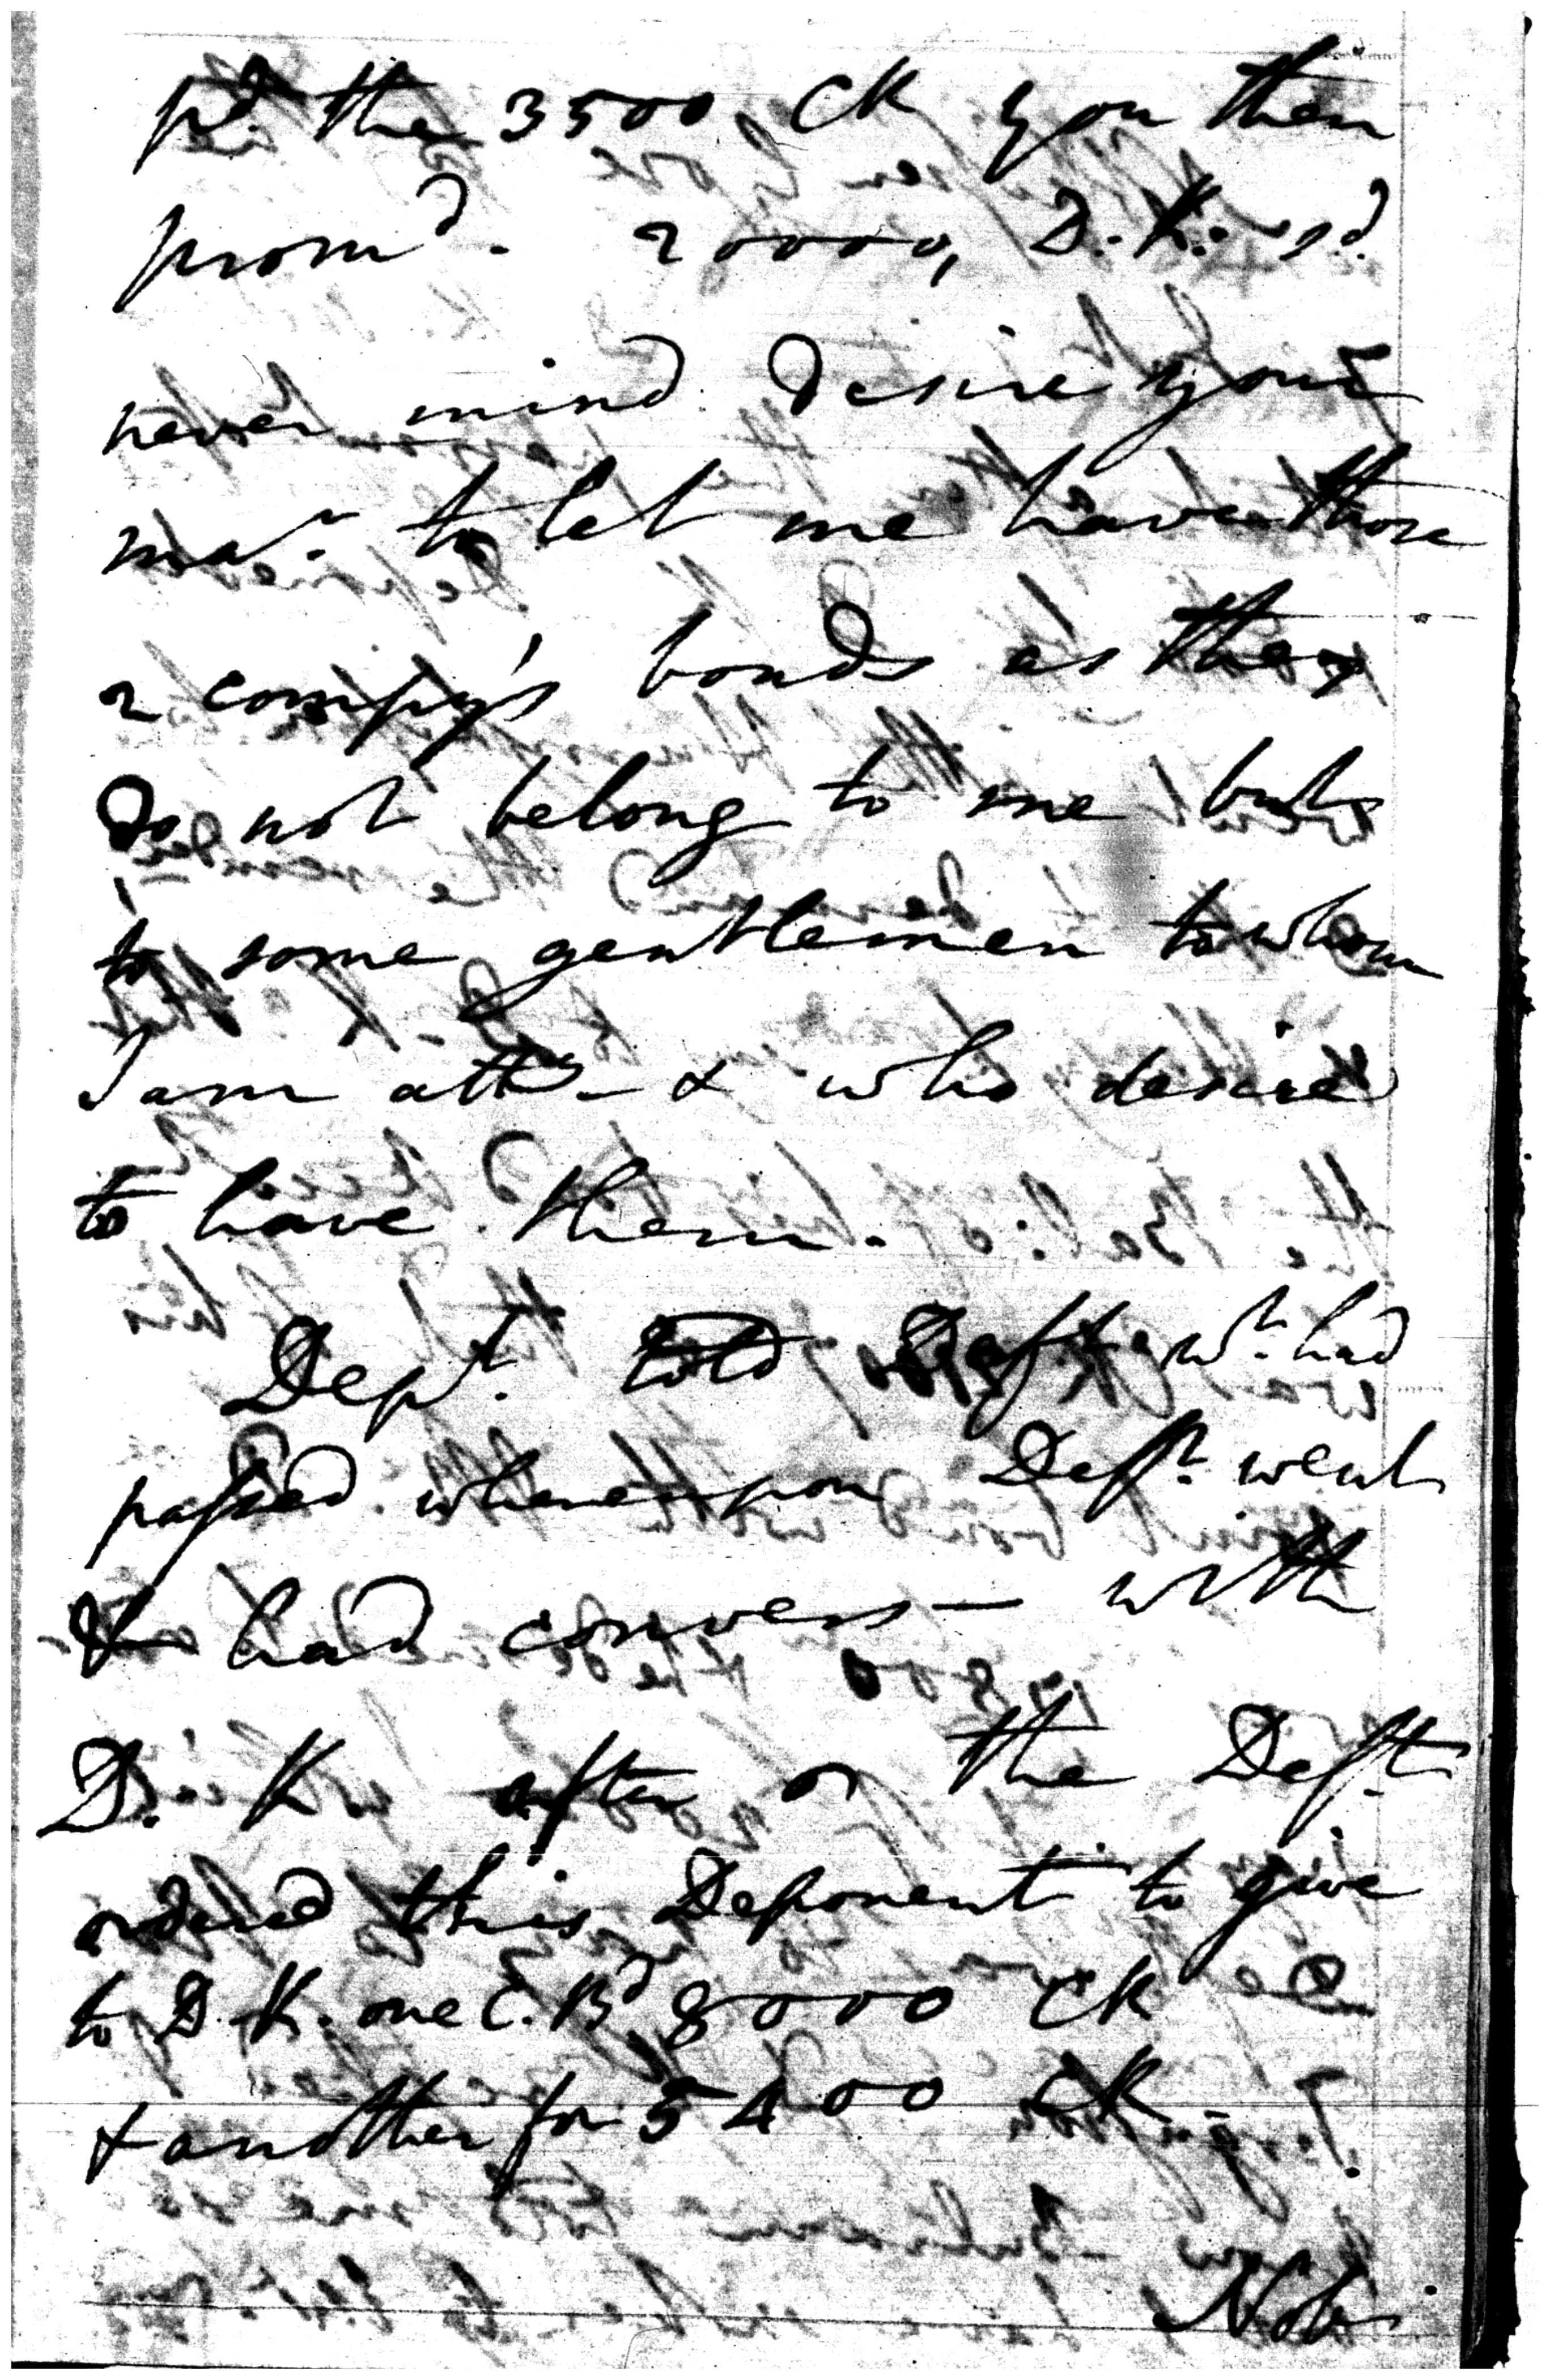 pd. the 3500 CK you then
promd. 20000, D. K. sd.
never mind desire your
mar. to let me have those
2 compy's bonds as they
do not belong to me but
to some gentlemen to whom
I am atty. & who desire
to have them.
Dept. told Deft wt. had
passed whereupon Deft. went
& had convers— with
D. K after wh the Deft.
ordered this Deponent to give
to D. K. one C. Bd 8000 CK
& another for 5400 CK.
Nob